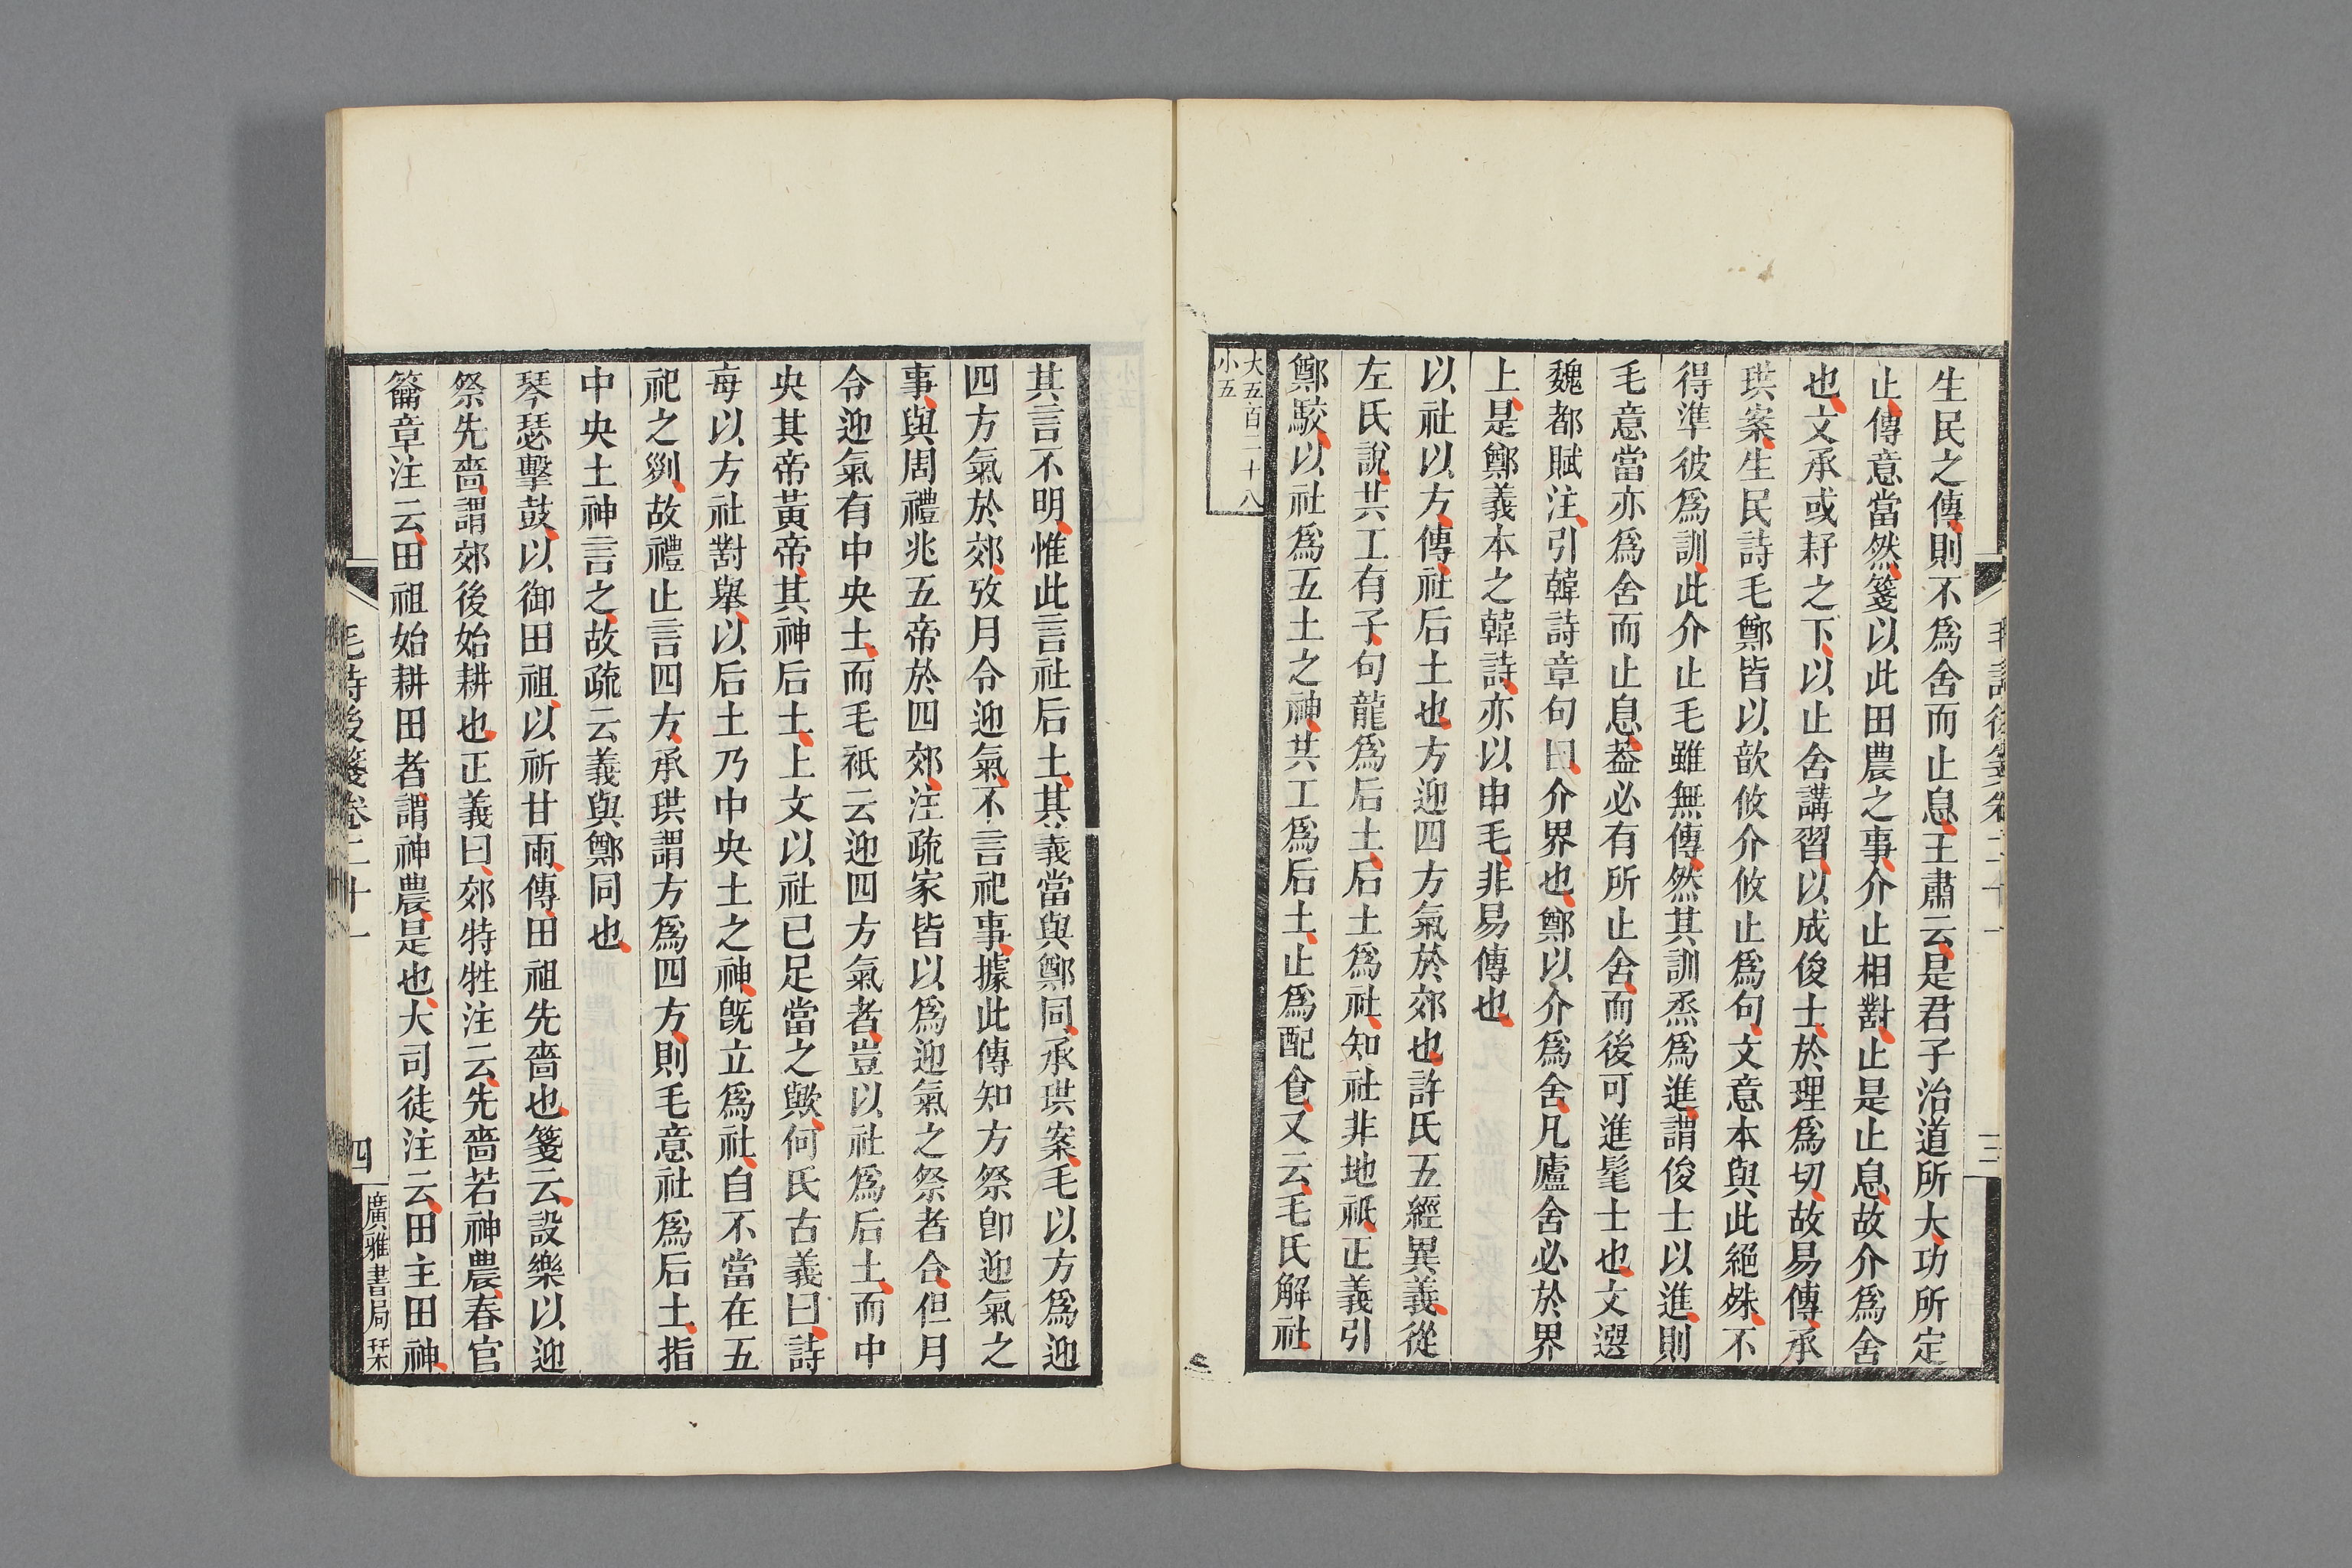 生民之傳則不爲舍而止息王肅云是君子治道所大功所定
止傳意當然箋以此田農之事介止相對止是止息故介爲舍
也文承或耔之下以止舍講習以成俊士於理爲切故易傳承
珙案生民詩毛鄭皆以歆攸介攸止爲句文意本與此絕殊不
得準彼爲訓此介止毛雖無傳然其訓烝爲進謂俊士以進則
毛意當亦爲舍而止息葢必有所止舍而後可進髦士也文選
魏都賦注引韓詩章句曰介界也鄭以介爲舍凡廬舍必於界
上是鄭義本之韓詩亦以申毛非易傳也
以社以方傳社后土也方迎四方氣於郊也許氏五經異義從
左氏說共工有子句龍爲后土后土爲社知社非地祇正義引
鄭駮以社爲五土之神共工爲后土止爲配食又云毛氏解社
大五百二十八
小五
毛詩後箋卷二十一
三
其言不明惟此言社后土其義當與鄭同承珙案毛以方爲迎
四方氣於郊攷月令迎氣不言祀事據此傳知方祭卽迎氣之
事與周禮兆五帝於四郊注疏家皆以爲迎氣之祭者合但月
令迎氣有中央土而毛祇云迎四方氣者豈以社爲后土而中
央其帝黃帝其神后土上文以社已足當之歟何氏古義曰詩
每以方社對舉以后土乃中央土之神旣立爲社自不當在五
祀之列故禮止言四方承珙謂方爲四方則毛意社爲后土指
中央土神言之故疏云義與鄭同也
琴瑟擊鼓以御田祖以祈甘雨傳田祖先嗇也箋云設樂以迎
祭先嗇謂郊後始耕也正義曰郊特牲注云先嗇若神農春官
籥章注云田祖始耕田者謂神農是也大司徒注云田主田神
毛詩後箋卷二十一
四
廣雅書局栞